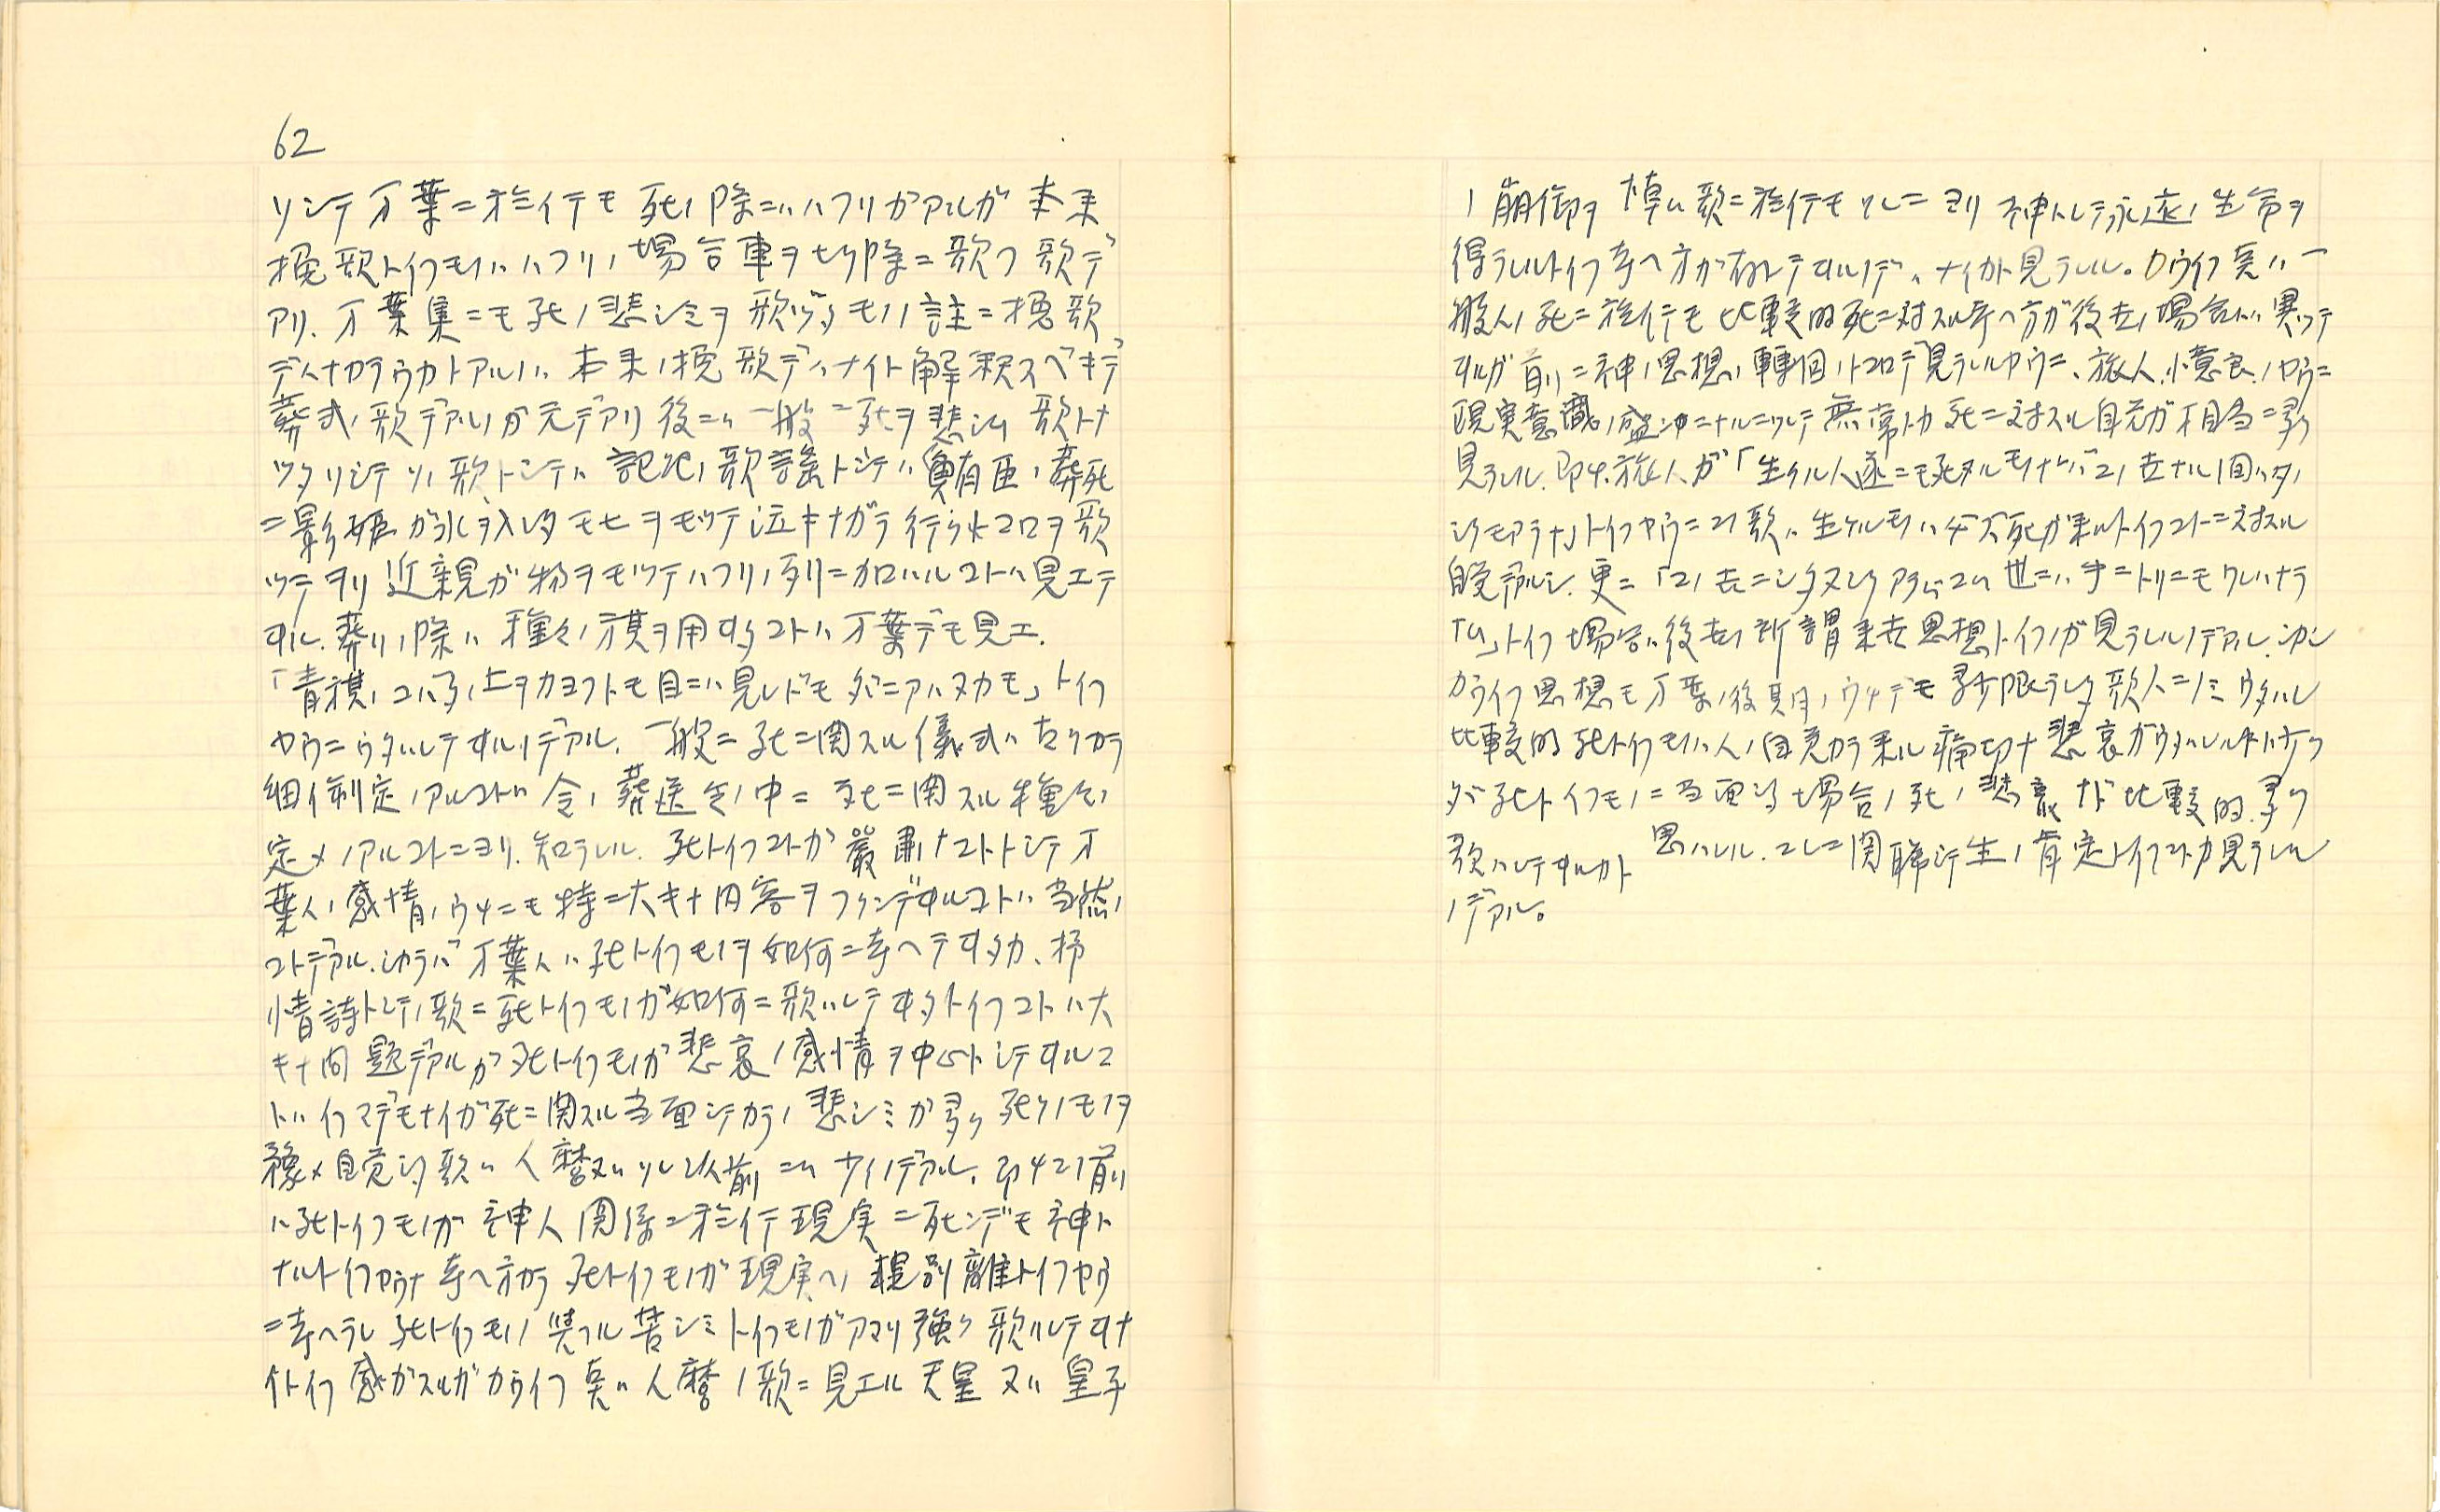 62
ソシテ万葉ニ於イテモ死ノ際ニハハフリガアルガ本来
挽歌トイフモノハハフリノ場合車ヲヒク際ニ歌フ歌デ
アリ、万葉集ニモ死ノ悲シミヲ歌ツタモノノ註ニ挽歌
デハナカラウカトアルノハ本来ノ挽歌デハナイト解釈スベキデ
葬式ノ歌デアルノガ元デアリ後ニハ一般ニ死ヲ悲シム歌トナ
ツタ ソシテソノ歌トシテハ記紀ノ歌謡トシテハ鮪臣ノ葬死
ニ影媛ガ水ヲ入レタモヒヲモツテ泣キナガラ行クトコロヲ歌
ツテヲリ近親ガ物ヲモツテハフリノ列ニカロハルコトハ見エテ
ヰル、葬リノ際ハ種々ノ旗ヲ用ヰタコトハ万葉デモ見エ、
「青旗ノコハタノ上ヲカヨフトモ目ニハ見レドモタダニアハヌカモ」トイフ
ヤウニウタハレテヰルノデアル、一般ニ死ニ関スル儀式ハ古クカラ
細イ制定ノアルコトハ令ノ葬送令ノ中ニ死ニ関スル種々ノ
定メノアルコトニヨリ知ラレル、死トイフコトガ厳粛ナコトトシテ万
葉人ノ感情ノウチニモ特ニ大キナ内容ヲフクンデヰルコトハ当然ノ
コトデアル、シカラバ万葉人ハ死トイフモノヲ如何ニ考ヘテヰタカ、抒
情詩トシテノ歌ニ死トイフモノガ如何ニ歌ハレテヰタトイフコトハ大
キナ問題デアルガ死トイフモノガ悲哀ノ感情ヲ中心トシテヰルコ
トハイフマデモナイガ死ニ関スル当面シテカラノ悲シミガ多ク死ソノモノヲ
予メ自覚シタ歌ハ人麿又ハソレ以前ニハナイノデアル、即チコノ前
ハ死トイフモノガ神人関係ニ於イテ現実ニ死ンデモ神ト
ナルトイフヤウナ考ヘ方カラ死トイフモノガ現実ヘノ別離トイフヤウ
ニ考ヘラレ死トイフモノノ与フル苦シミトイフモノガアマリ強ク歌ハレテヰナ
イトイフ感ガスルガカウイフ点ハ人麿ノ歌ニ見エル天皇又ハ皇子
ノ崩御ヲ悼ム歌ニ於イテモソレニヨリ神トシテ永遠ノ生命ヲ
得ラレルトイフ考ヘ方ガ存シテヰルノデハナイカト見ラレル。カウイフ点ハ一
般人ノ死ニ於イテモ比較的死ニ対スル考ヘ方ガ後世ノ場合トハ異ツテ
ヰルガ前ニ神ノ思想ノ転回ノトコロデ見ラレルヤウニ、旅人、憶良ノヤウニ
現実意識ノ盛ンニナルニツレテ無常トカ死ニ対スル自覚ガ相当ニ多ク
見ラレル、即チ、旅人ガ「生ケル人遂ニモ死ヌルモノナレバコノ世ナル間ハタノ
シクモアラナ」トイフヤウニコノ歌ハ生ケルモノハ必ズ死ガ来ルトイフコトニ対スル
自覚デアルシ、更ニ「コノ世ニシタヌシクアラバコム世ニハ虫ニトリニモワレハナラ
「ム」トイフ場合ハ後世ノ所謂来世思想トイフノガ見ラレルノデアル、シカシ
カウイフ思想モ万葉ノ後期ノウチデモ限ラレタ歌人ニノミウタハレ
比較的死トイフモノハ人ノ自覚カラ来ル痛切ナ悲哀ガウタハレルノデハナク
タダ死トイフモノニ当面シタ場合ノ死ノ悲哀ナド比較的多ク
歌ハレテヰルカト思ハレル、コレニ関聯シテ生ノ肯定トイフコトガ見ラレル
ノデアル。